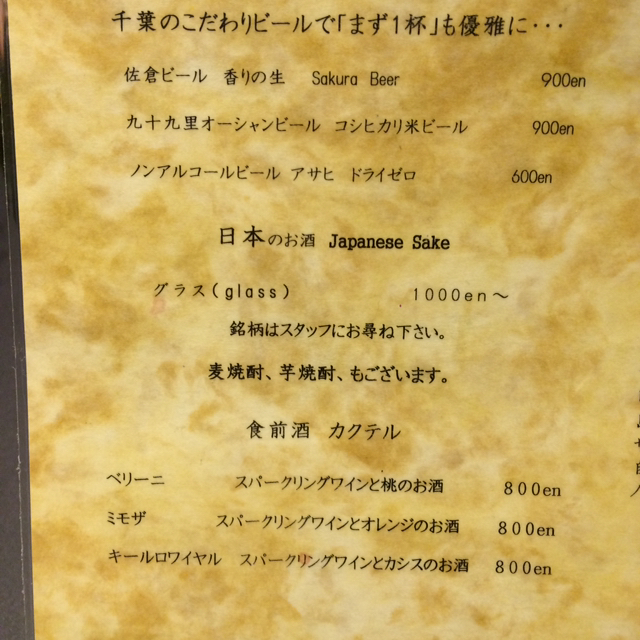 千葉のこだわりビールで「まず1杯」も優雅に・・・
佐倉ビール 香りの生 Sakura Beer 900en
九十九里オーシャンビール コシヒカリ米ビール 900en
ノンアルコールビール アサヒ ドライゼロ 600en
日本のお酒 Japanese Sake
グラス(glass) 1000en～
銘柄はスタッフにお尋ね下さい。
麦焼酎、芋焼酎、もございます。
食前酒 カクテル
ベリーニ スパークリングワインと桃のお酒 800en
ミモザ スパークリングワインとオレンジのお酒 800en
キールロワイヤル スパークリングワインとカシスのお酒 800en